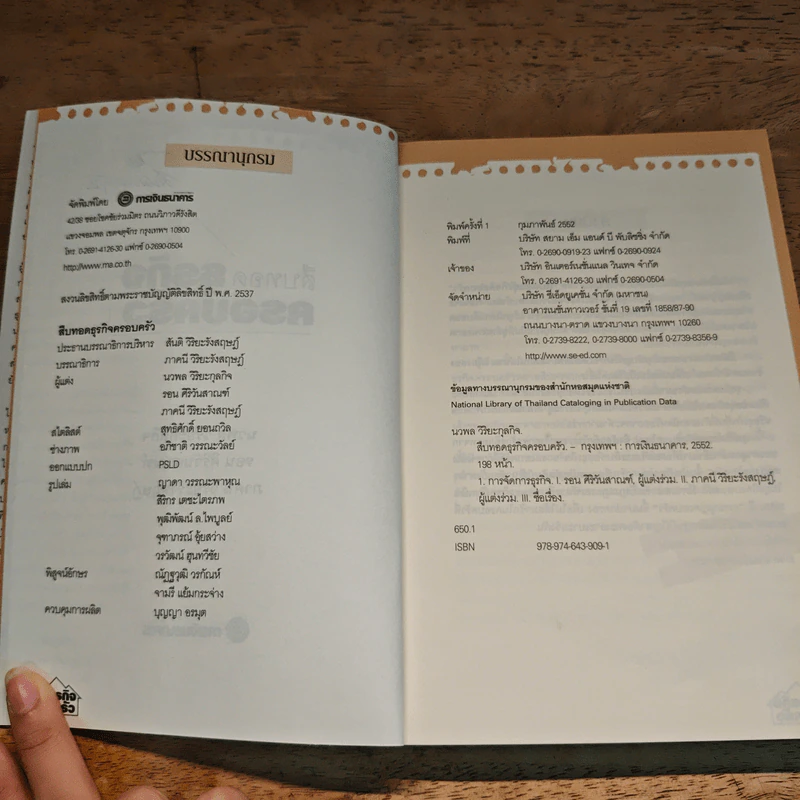 บรรณานุกรม
จัดพิมพ์โดย การเงินธนาคาร
4208 ซอยโชคชัยร่วมมิตร ถนนวิภาวดีรังสิต
แขวงจอมพล เขตจตุจักร กรุงเทพฯ 10900
โทร. 0-2691-4126-30 แฟกซ์ 0-2690-0504
http://www.ma.co.th
สงวนลิขสิทธิ์ตามพระราชบัญญัติลิขสิทธิ์ ปี พ.ศ. 2537
สืบทอดธุรกิจครอบครัว
ประธานบรรณาธิการบริหาร สันติ วิริยะรังสฤษฎ์
บรรณาธิการ ภาคนี วิริยะรังสฤษฎ์
ผู้แต่ง นวพล วิริยะกุลกิจ
รอน ศิริวันสาณฑ์
ภาคนี วิริยะรังสฤษฎ์
สไตลิสต์ สุทธิศักดิ์ ยอนถวิล
ช่างภาพ อภิชาติ วรรณะวัลย์
ออกแบบปก PSLD
รูปเล่ม ญาดา วรรณะพาหุณ
สิริกร เตชะไตรภพ
พุฒิพัฒน์ ล.ไพบูลย์
จุฑาภรณ์ อุ้ยสว่าง
วรวัฒน์ ฮุนทวีชัย
พิสูจน์อักษร ณัฏฐวุฒิ วรกัณห์
จามรี แย้มกระจ่าง
ควบคุมการผลิต บุญญา อรมุต
พิมพ์ครั้งที่ 1 กุมภาพันธ์ 2552
พิมพ์ที่ บริษัท สยาม เอ็ม แอนด์ บี พับลิชชิ่ง จำกัด
โทร. 0-2690-0919-23 แฟกซ์ 0-2690-0924
เจ้าของ บริษัท อินเตอร์เนชั่นแนล วินเทจ จำกัด
โทร. 0-2691-4126-30 แฟกซ์ 0-2690-0504
จัดจำหน่าย บริษัท ซีเอ็ดยูเคชั่น จำกัด (มหาชน)
อาคารเนชั่นทาวเวอร์ ชั้นที่ 19 เลขที่ 1858/87-90
ถนนบางนา-ตราด แขวงบางนา กรุงเทพฯ 10260
โทร. 0-2739-8222, 0-2739-8000 แฟกซ์ 0-2739-8356-9
http://www.se-ed.com
ข้อมูลทางบรรณานุกรมของสำนักหอสมุดแห่งชาติ
National Library of Thailand Cataloging in Publication Data
นวพล วิริยะกุลกิจ.
สืบทอดธุรกิจครอบครัว. – กรุงเทพฯ : การเงินธนาคาร, 2552.
198 หน้า.
1. การจัดการธุรกิจ. I. รอน ศิริวันสาณฑ์, ผู้แต่งร่วม. II. ภาคนี วิริยะรังสฤษฎ์,
ผู้แต่งร่วม. III. ชื่อเรื่อง.
650.1
ISBN 978-974-643-909-1